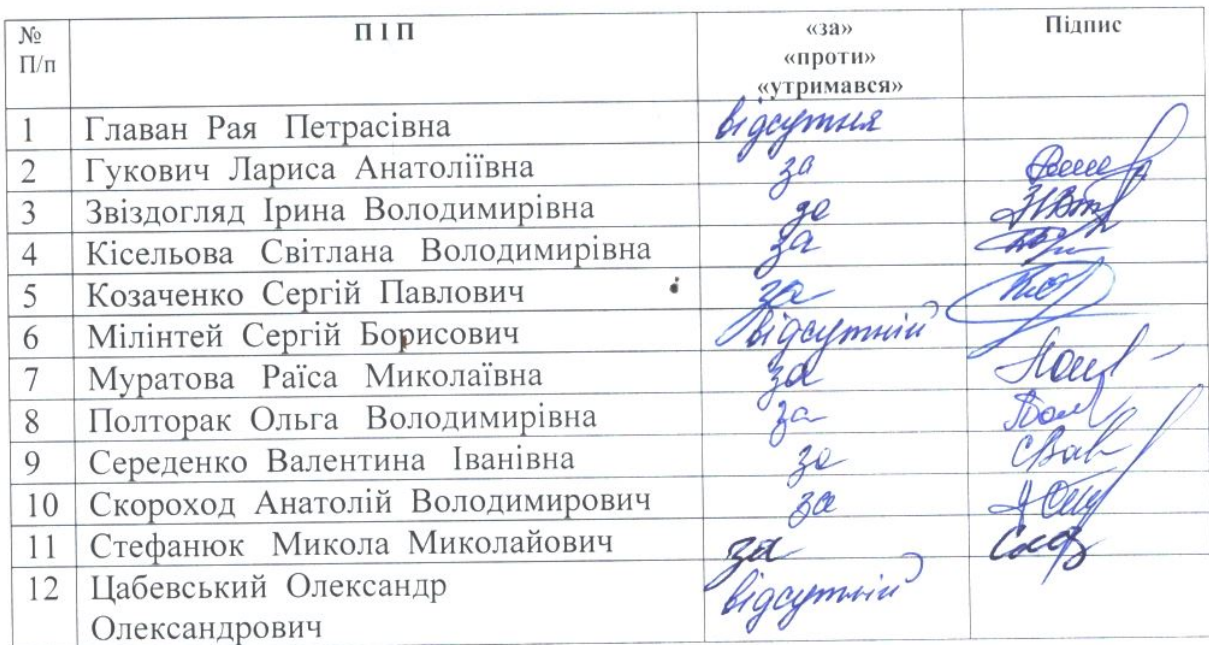 № П/п П І П «за» «проти» «утримався» Підпис
1 Главан Рая Петрасівна відсутня
2 Гукович Лариса Анатоліївна за
3 Звіздогляд Ірина Володимирівна за
4 Кісельова Світлана Володимирівна за
5 Козаченко Сергій Павлович за
6 Мілінтей Сергій Борисович відсутній
7 Муратова Раїса Миколаївна за
8 Полторак Ольга Володимирівна за
9 Середенко Валентина Іванівна за
10 Скороход Анатолій Володимирович за
11 Стефанюк Микола Миколайович за
12 Цабевський Олександр відсутній
Олександрович